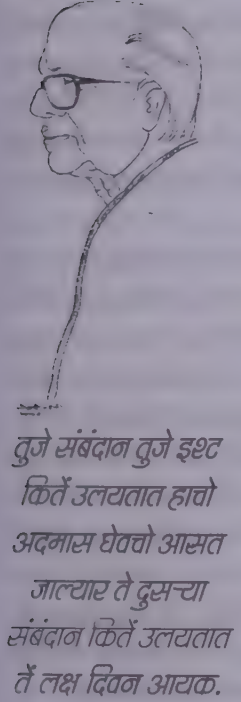 तुजे संबंदान तुजे इश्ट
कितें उलयतात हाचो
अदमास घेवचो आसत
जाल्यार ते दुसऱ्या
संबंदान कितें उलयतात
तें लक्ष दिवन आयक.